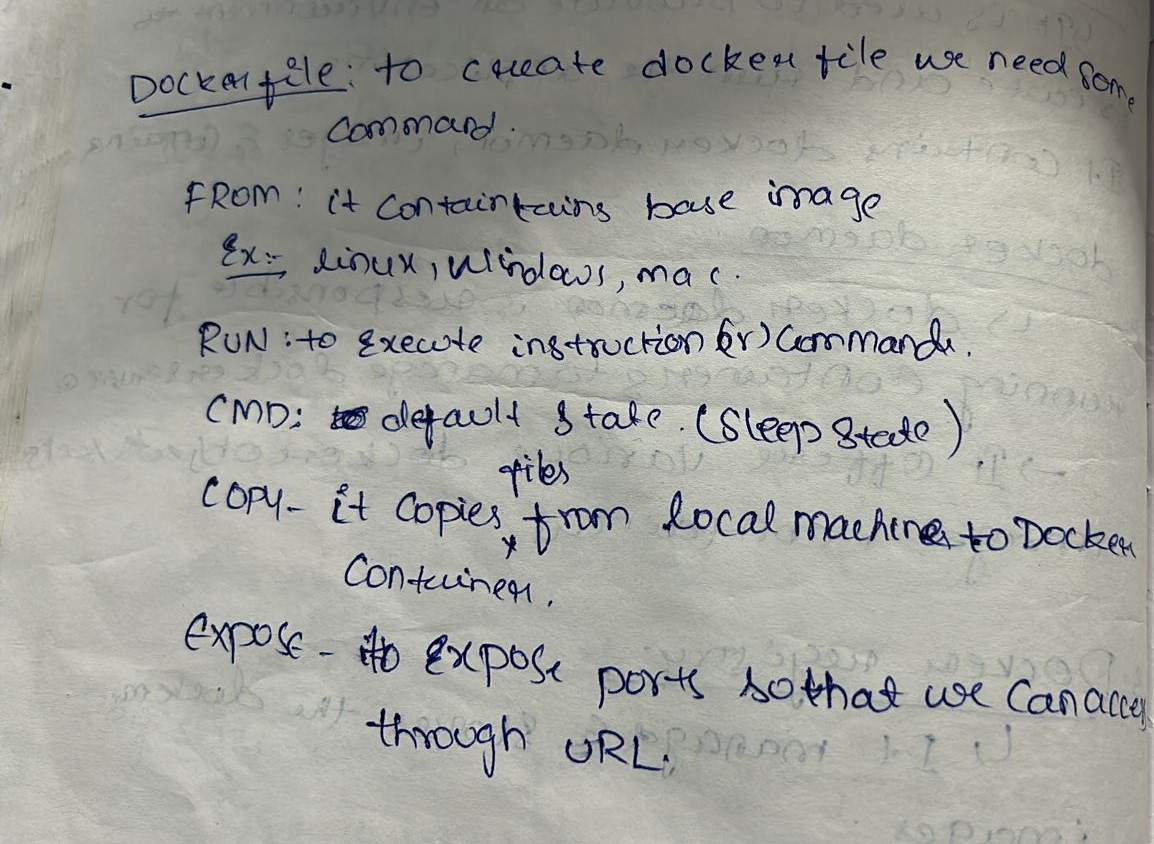 Dockerfile: to create docker file we need some
command.
FROM: it containtains base image
Ex:- linux, windows, mac.
RUN: to Execute instruction (or) Commands.
CMD: default state. (Sleep state)
files
COPY- it copies from local machine to Docker
Container.
EXPOSE- to Expose ports so that we can acces
through URL.